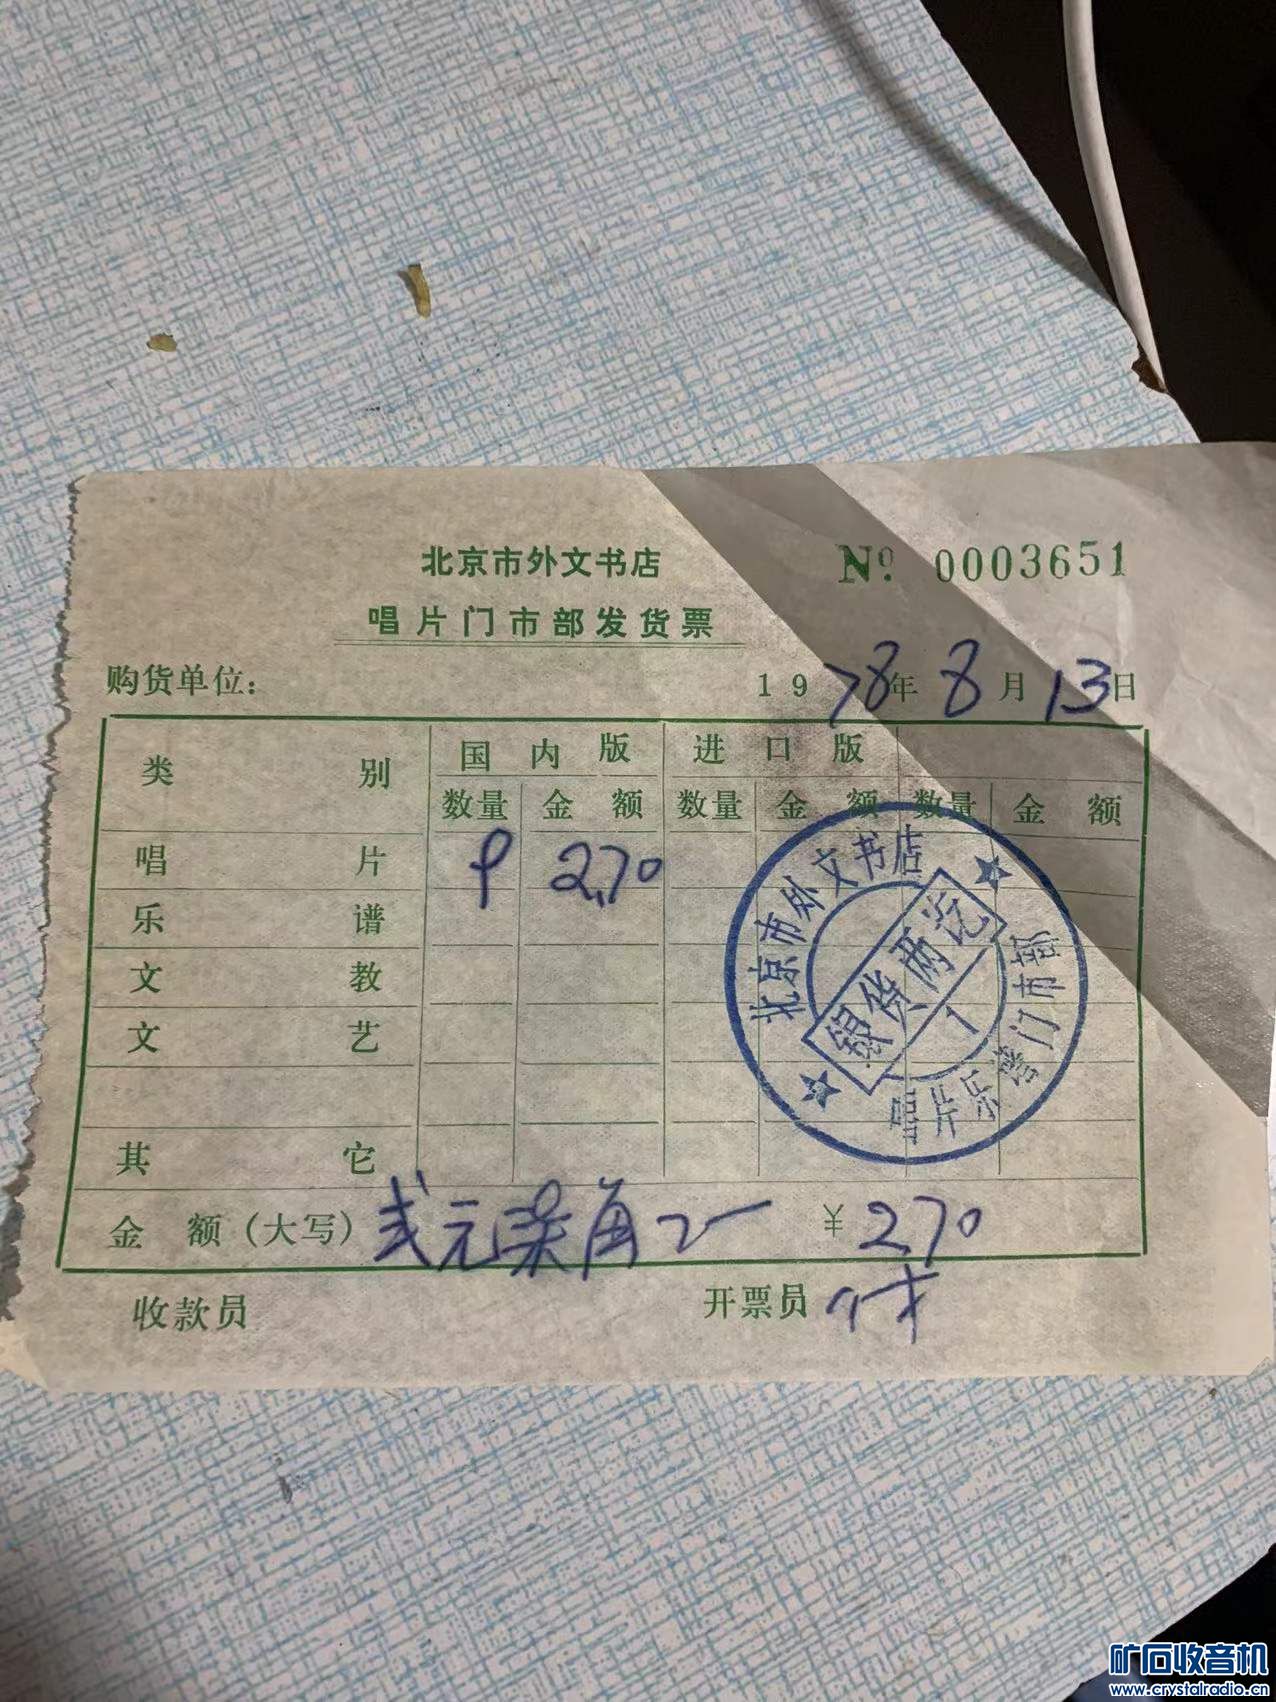 北京市外文书店
№ 0003651
唱片门市部发货票
购货单位： 1978年8月13日
类别 国内版 进口版
数量 金额 数量 金额 数量 金额
唱片 9 2.70
乐谱
文教
文艺
其它
金额（大写）贰元柒角 ¥ 2.70
收款员 开票员
北京市外文书店
银货两讫
1
唱片乐谱门市部
矿石收音机
www.crystalradio.cn